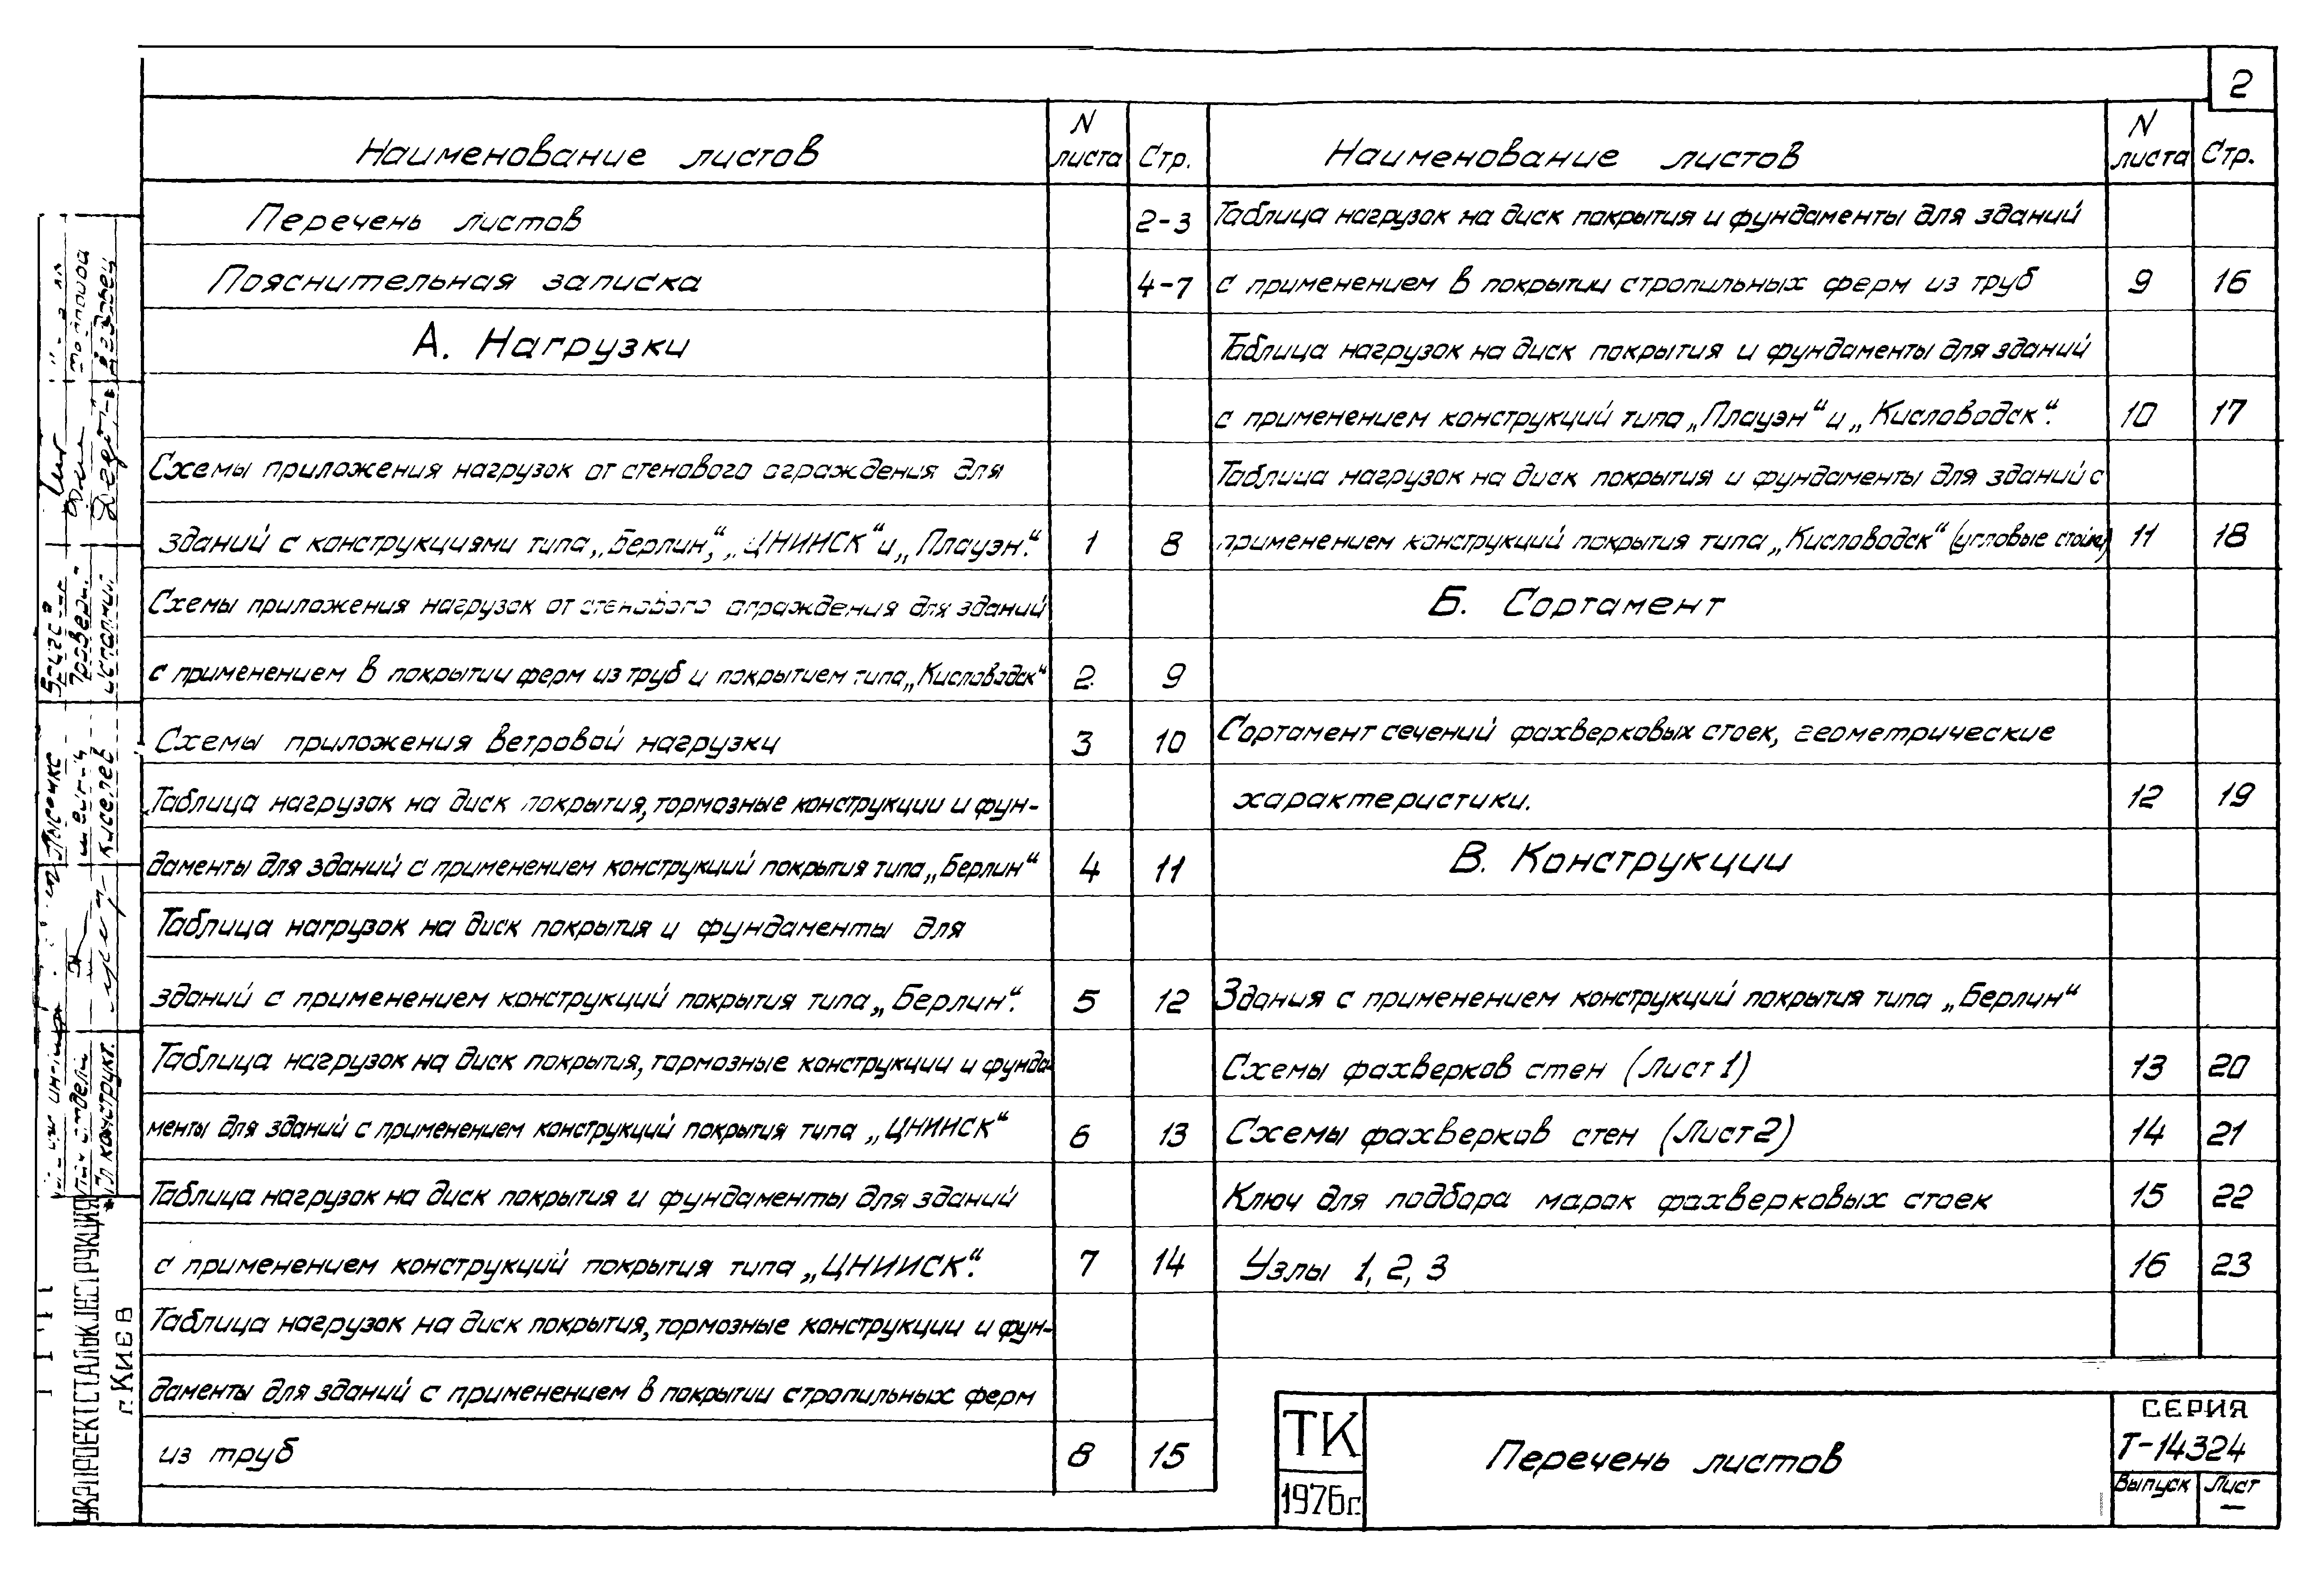 2
Наименование листов N листа Стр.
Перечень листов 2-3
Пояснительная записка 4-7
А. Нагрузки
Схемы приложения нагрузок от стенового ограждения для
зданий с конструкциями типа „Берлин“, „ЦНИИСК“ и „Плауэн“. 1 8
Схемы приложения нагрузок от стенового ограждения для зданий
с применением в покрытии ферм из труб и покрытием типа „Кисловодск“ 2 9
Схемы приложения ветровой нагрузки 3 10
Таблица нагрузок на диск покрытия, тормозные конструкции и фун-
даменты для зданий с применением конструкций покрытия типа „Берлин“ 4 11
Таблица нагрузок на диск покрытия и фундаменты для
зданий с применением конструкций покрытия типа „Берлин“. 5 12
Таблица нагрузок на диск покрытия, тормозные конструкции и фунда-
менты для зданий с применением конструкций покрытия типа „ЦНИИСК“ 6 13
Таблица нагрузок на диск покрытия и фундаменты для зданий
с применением конструкций покрытия типа „ЦНИИСК“. 7 14
Таблица нагрузок на диск покрытия, тормозные конструкции и фун-
даменты для зданий с применением в покрытии стропильных ферм
из труб 8 15
Наименование листов N листа Стр.
Таблица нагрузок на диск покрытия и фундаменты для зданий
с применением в покрытии стропильных ферм из труб 9 16
Таблица нагрузок на диск покрытия и фундаменты для зданий
с применением конструкций типа „Плауэн“ и „Кисловодск“. 10 17
Таблица нагрузок на диск покрытия и фундаменты для зданий с
применением конструкций покрытия типа „Кисловодск“ (угловые стойки) 11 18
Б. Сортамент
Сортамент сечений фахверковых стоек, геометрические
характеристики. 12 19
В. Конструкции
Здания с применением конструкций покрытия типа „Берлин“
Схемы фахверков стен (Лист 1) 13 20
Схемы фахверков стен (Лист 2) 14 21
Ключ для подбора марок фахверковых стоек 15 22
Узлы 1, 2, 3 16 23
ТК
1976г.
Перечень листов
СЕРИЯ
Т-14324
Выпуск Лист
—
УКРПРОЕКТСТАЛЬКОНСТРУКЦИЯ
г. Киев
Гл. конструкт. Киселев